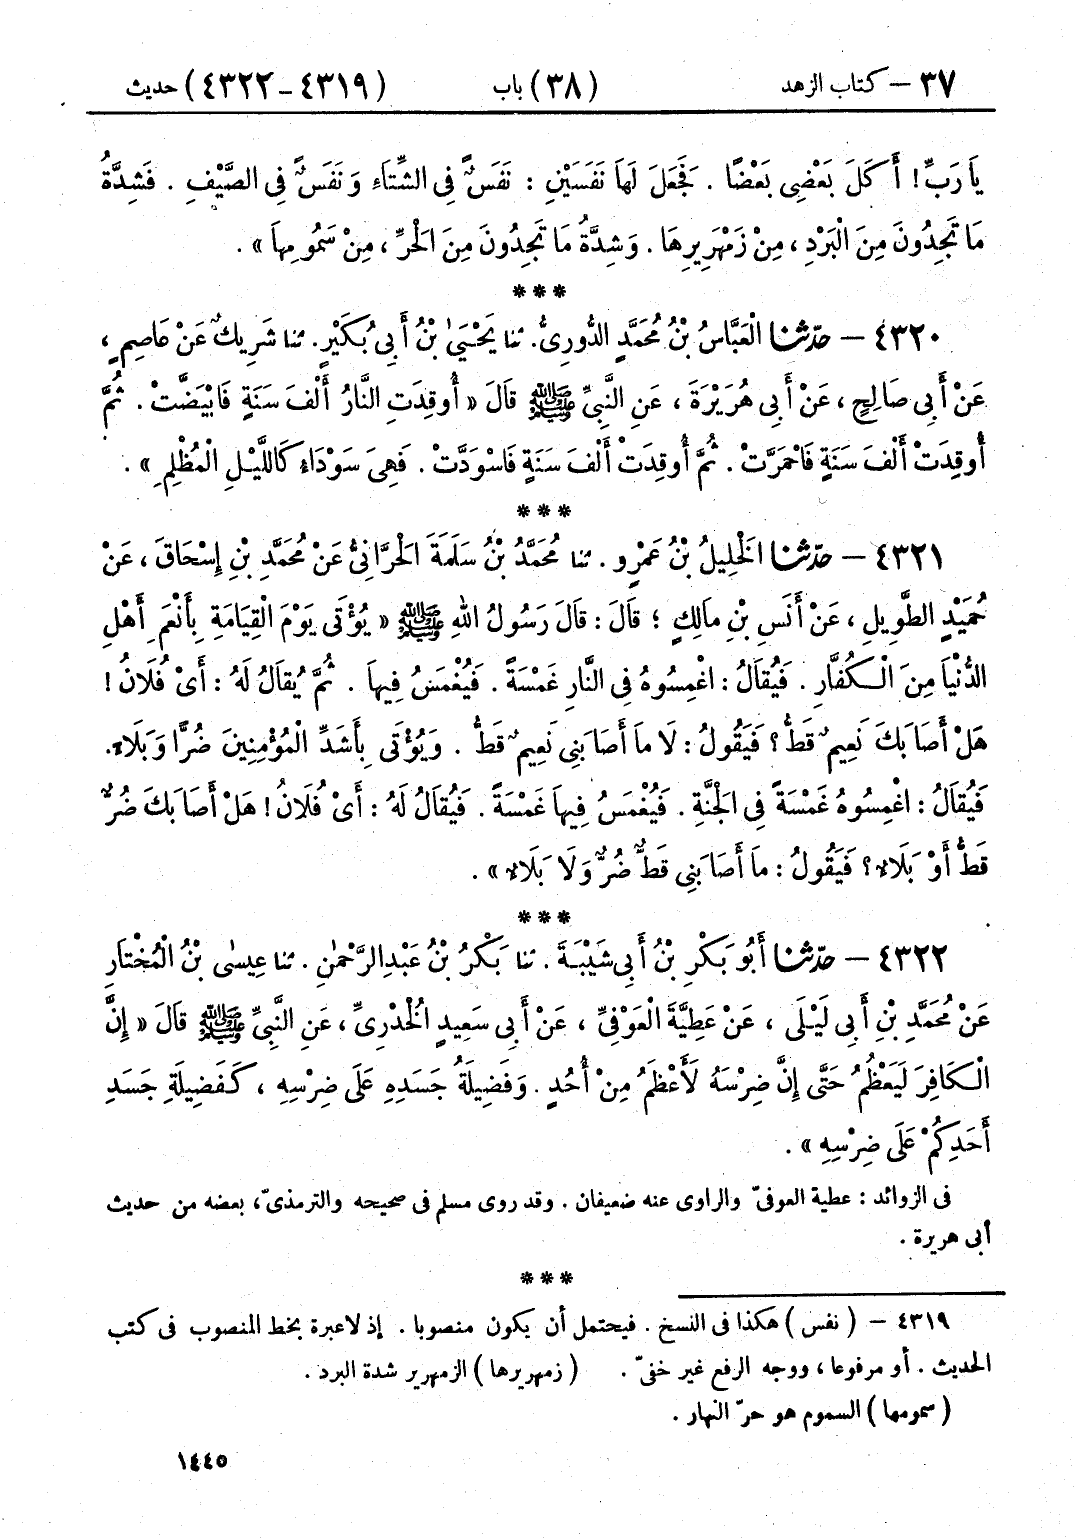 ٣٧ – كتاب الزهد (٣٨) باب (٤٣١٩ – ٤٣٢٢) حديث
يَا رَبِّ! أَكَلَ بَعْضِى بَعْضًا . فَجَعَلَ لَهَا نَفَسَيْنِ : نَفَسٌ فِى الشِّتَاءِ وَنَفَسٌ فِى الصَّيْفِ . فَشِدَّةُ
مَا تَجِدُونَ مِنَ الْبَرْدِ ، مِنْ زَمْهَرِيرِهَا . وَشِدَّةُ مَا تَجِدُونَ مِنَ الْحَرِّ ، مِنْ سَمُومِهَا » .
* * *
٤٣٢٠ – حدّثنا الْعَبَّاسُ بْنُ مُحَمَّدٍ الدُّورِىُّ. ثنا يَحْيَىٰ بْنُ أَبِى بُكَيْرٍ. ثنا شَرِيكٌ عَنْ عَاصِمٍ ،
عَنْ أَبِى صَالِحٍ ، عَنْ أَبِى هُرَيْرَةَ ، عَنِ النَّبِىِّ ﷺ قَالَ « أُوقِدَتِ النَّارُ أَلْفَ سَنَةٍ فَابْيَضَّتْ . ثُمَّ
أُوقِدَتْ أَلْفَ سَنَةٍ فَاحْمَرَّتْ . ثُمَّ أُوقِدَتْ أَلْفَ سَنَةٍ فَاسْوَدَّتْ . فَهِىَ سَوْدَاءُ كَاللَّيْلِ الْمُظْلِمِ » .
* * *
٤٣٢١ – حدّثنا الْخَلِيلُ بْنُ عَمْرٍو . ثنا مُحَمَّدُ بْنُ سَلَمَةَ الْحَرَّانِىُّ عَنْ مُحَمَّدِ بْنِ إِسْحَاقَ ، عَنْ
حُمَيْدٍ الطَّوِيلِ ، عَنْ أَنَسِ بْنِ مَالِكٍ ؛ قَالَ : قَالَ رَسُولُ اللهِ ﷺ « يُؤْتَى يَوْمَ الْقِيَامَةِ بِأَنْعَمِ أَهْلِ
الدُّنْيَا مِنَ الْكُفَّارِ . فَيُقَالُ : اغْمِسُوهُ فِى النَّارِ غَمْسَةً . فَيُغْمَسُ فِيهَا . ثُمَّ يُقَالُ لَهُ : أَىْ فُلَانُ !
هَلْ أَصَابَكَ نَعِيمٌ قَطُّ ؟ فَيَقُولُ : لَا مَا أَصَابَنِى نَعِيمٌ قَطُّ . وَيُؤْتَى بِأَشَدِّ الْمُؤْمِنِينَ ضُرًّا وَبَلَاءً.
فَيُقَالُ : اغْمِسُوهُ غَمْسَةً فِى الْجَنَّةِ . فَيُغْمَسُ فِيهَا غَمْسَةً . فَيُقَالُ لَهُ : أَىْ فُلَانُ ! هَلْ أَصَابَكَ ضُرٌّ
قَطُّ أَوْ بَلَاءٌ ؟ فَيَقُولُ : مَا أَصَابَنِى قَطُّ ضُرٌّ وَلَا بَلَاءٌ » .
* * *
٤٣٢٢ – حدّثنا أَبُو بَكْرِ بْنُ أَبِى شَيْبَةَ . ثنا بَكْرُ بْنُ عَبْدِ الرَّحْمٰنِ . ثنا عِيسٰى بْنُ الْمُخْتَارِ
عَنْ مُحَمَّدِ بْنِ أَبِى لَيْلَى ، عَنْ عَطِيَّةَ الْعَوْفِىِّ ، عَنْ أَبِى سَعِيدٍ الْخُدْرِىِّ ، عَنِ النَّبِىِّ ﷺ قَالَ « إِنَّ
الْكَافِرَ لَيَعْظُمُ حَتَّى إِنَّ ضِرْسَهُ لَأَعْظَمُ مِنْ أُحُدٍ . وَفَضِيلَةُ جَسَدِهِ عَلَى ضِرْسِهِ ، كَفَضِيلَةِ جَسَدِ
أَحَدِكُمْ عَلَى ضِرْسِهِ » .
فى الزوائد : عطية العوفىّ والراوى عنه ضعيفان . وقد روى مسلم فى صحيحه والترمذىّ، بعضه من حديث
أبى هريرة .
* * *
٤٣١٩ – ( نفس ) هكذا فى النسخ . فيحتمل أن يكون منصوبا . إذ لا عبرة بخط المنصوب فى كتب
الحديث . أو مرفوعا ، ووجه الرفع غير خفىّ . ( زمهريرها ) الزمهرير شدة البرد .
( سمومها ) السموم هو حرّ النهار .
١٤٤٥